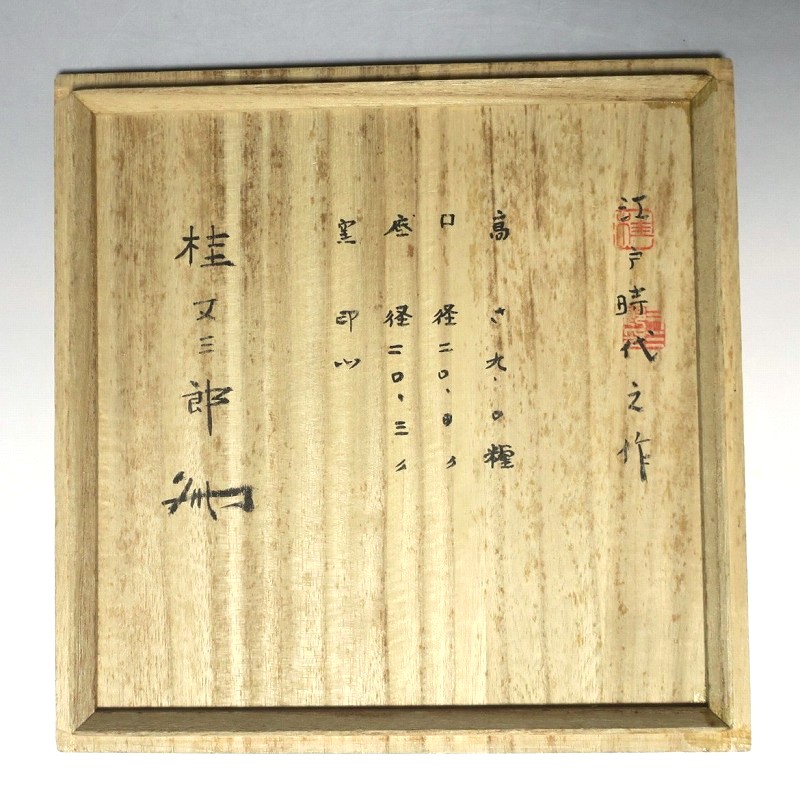 江戸時代之作
高さ九.〇糎
口径二〇.
底径二〇.三〃
窯印
桂又三郎